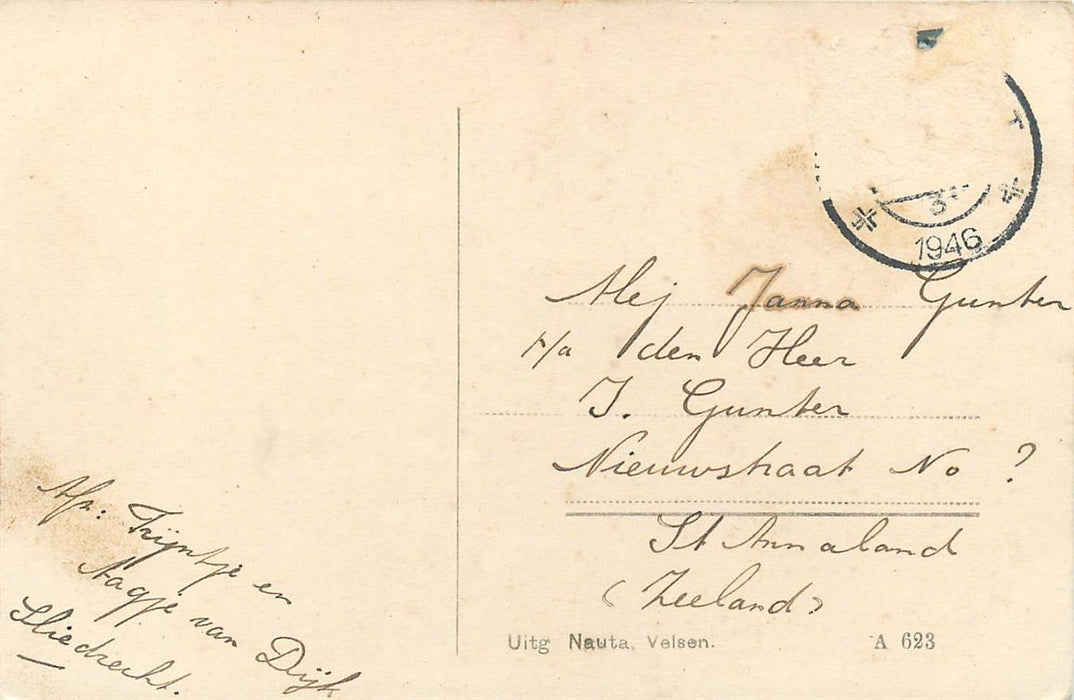 1946
Mej Janna Gunter
p/a den Heer
J. Gunter
Nieuwstraat No ?
St Annaland
(Zeeland)
Afz: Trijntje en
Aagje van Dijk
Sliedrecht.
Uitg Nauta, Velsen.
A 623